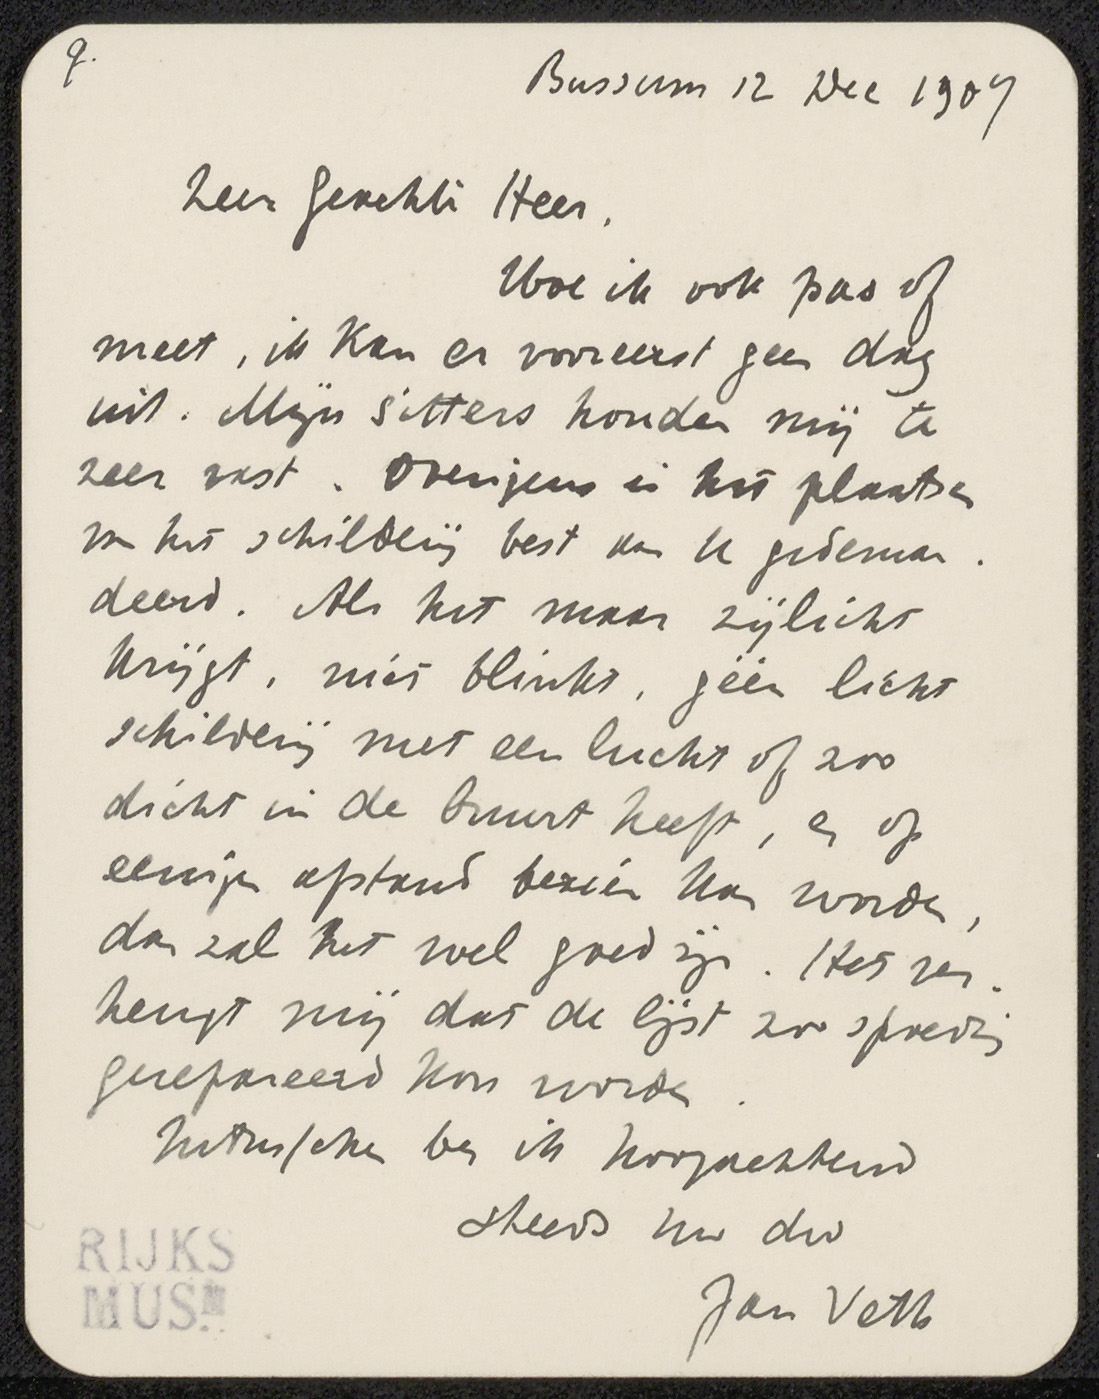 9.
Bussum 12 Dec 1907
Zeer Geachte Heer,
Hoe ik ook pas of
meet, ik kan er vooreerst geen dag
uit. Mijn sitters houden mij te
zeer vast. Overigens is het plaatsen
van het schilderij best aan U gedeman-
deerd. Als het maar zijlicht
krijgt, niet blinkt, géén licht
schilderij met een lucht of zoo
dicht in de buurt heeft, en op
eenigen afstand bezien kan worden,
dan zal het wel goed zijn. Het ver-
heugt mij dat de lijst zoo spoedig
gerepareerd kon worden.
Intusschen ben ik hoogachtend
steeds uw dw
Jan Veth
RIJKS
MUSM